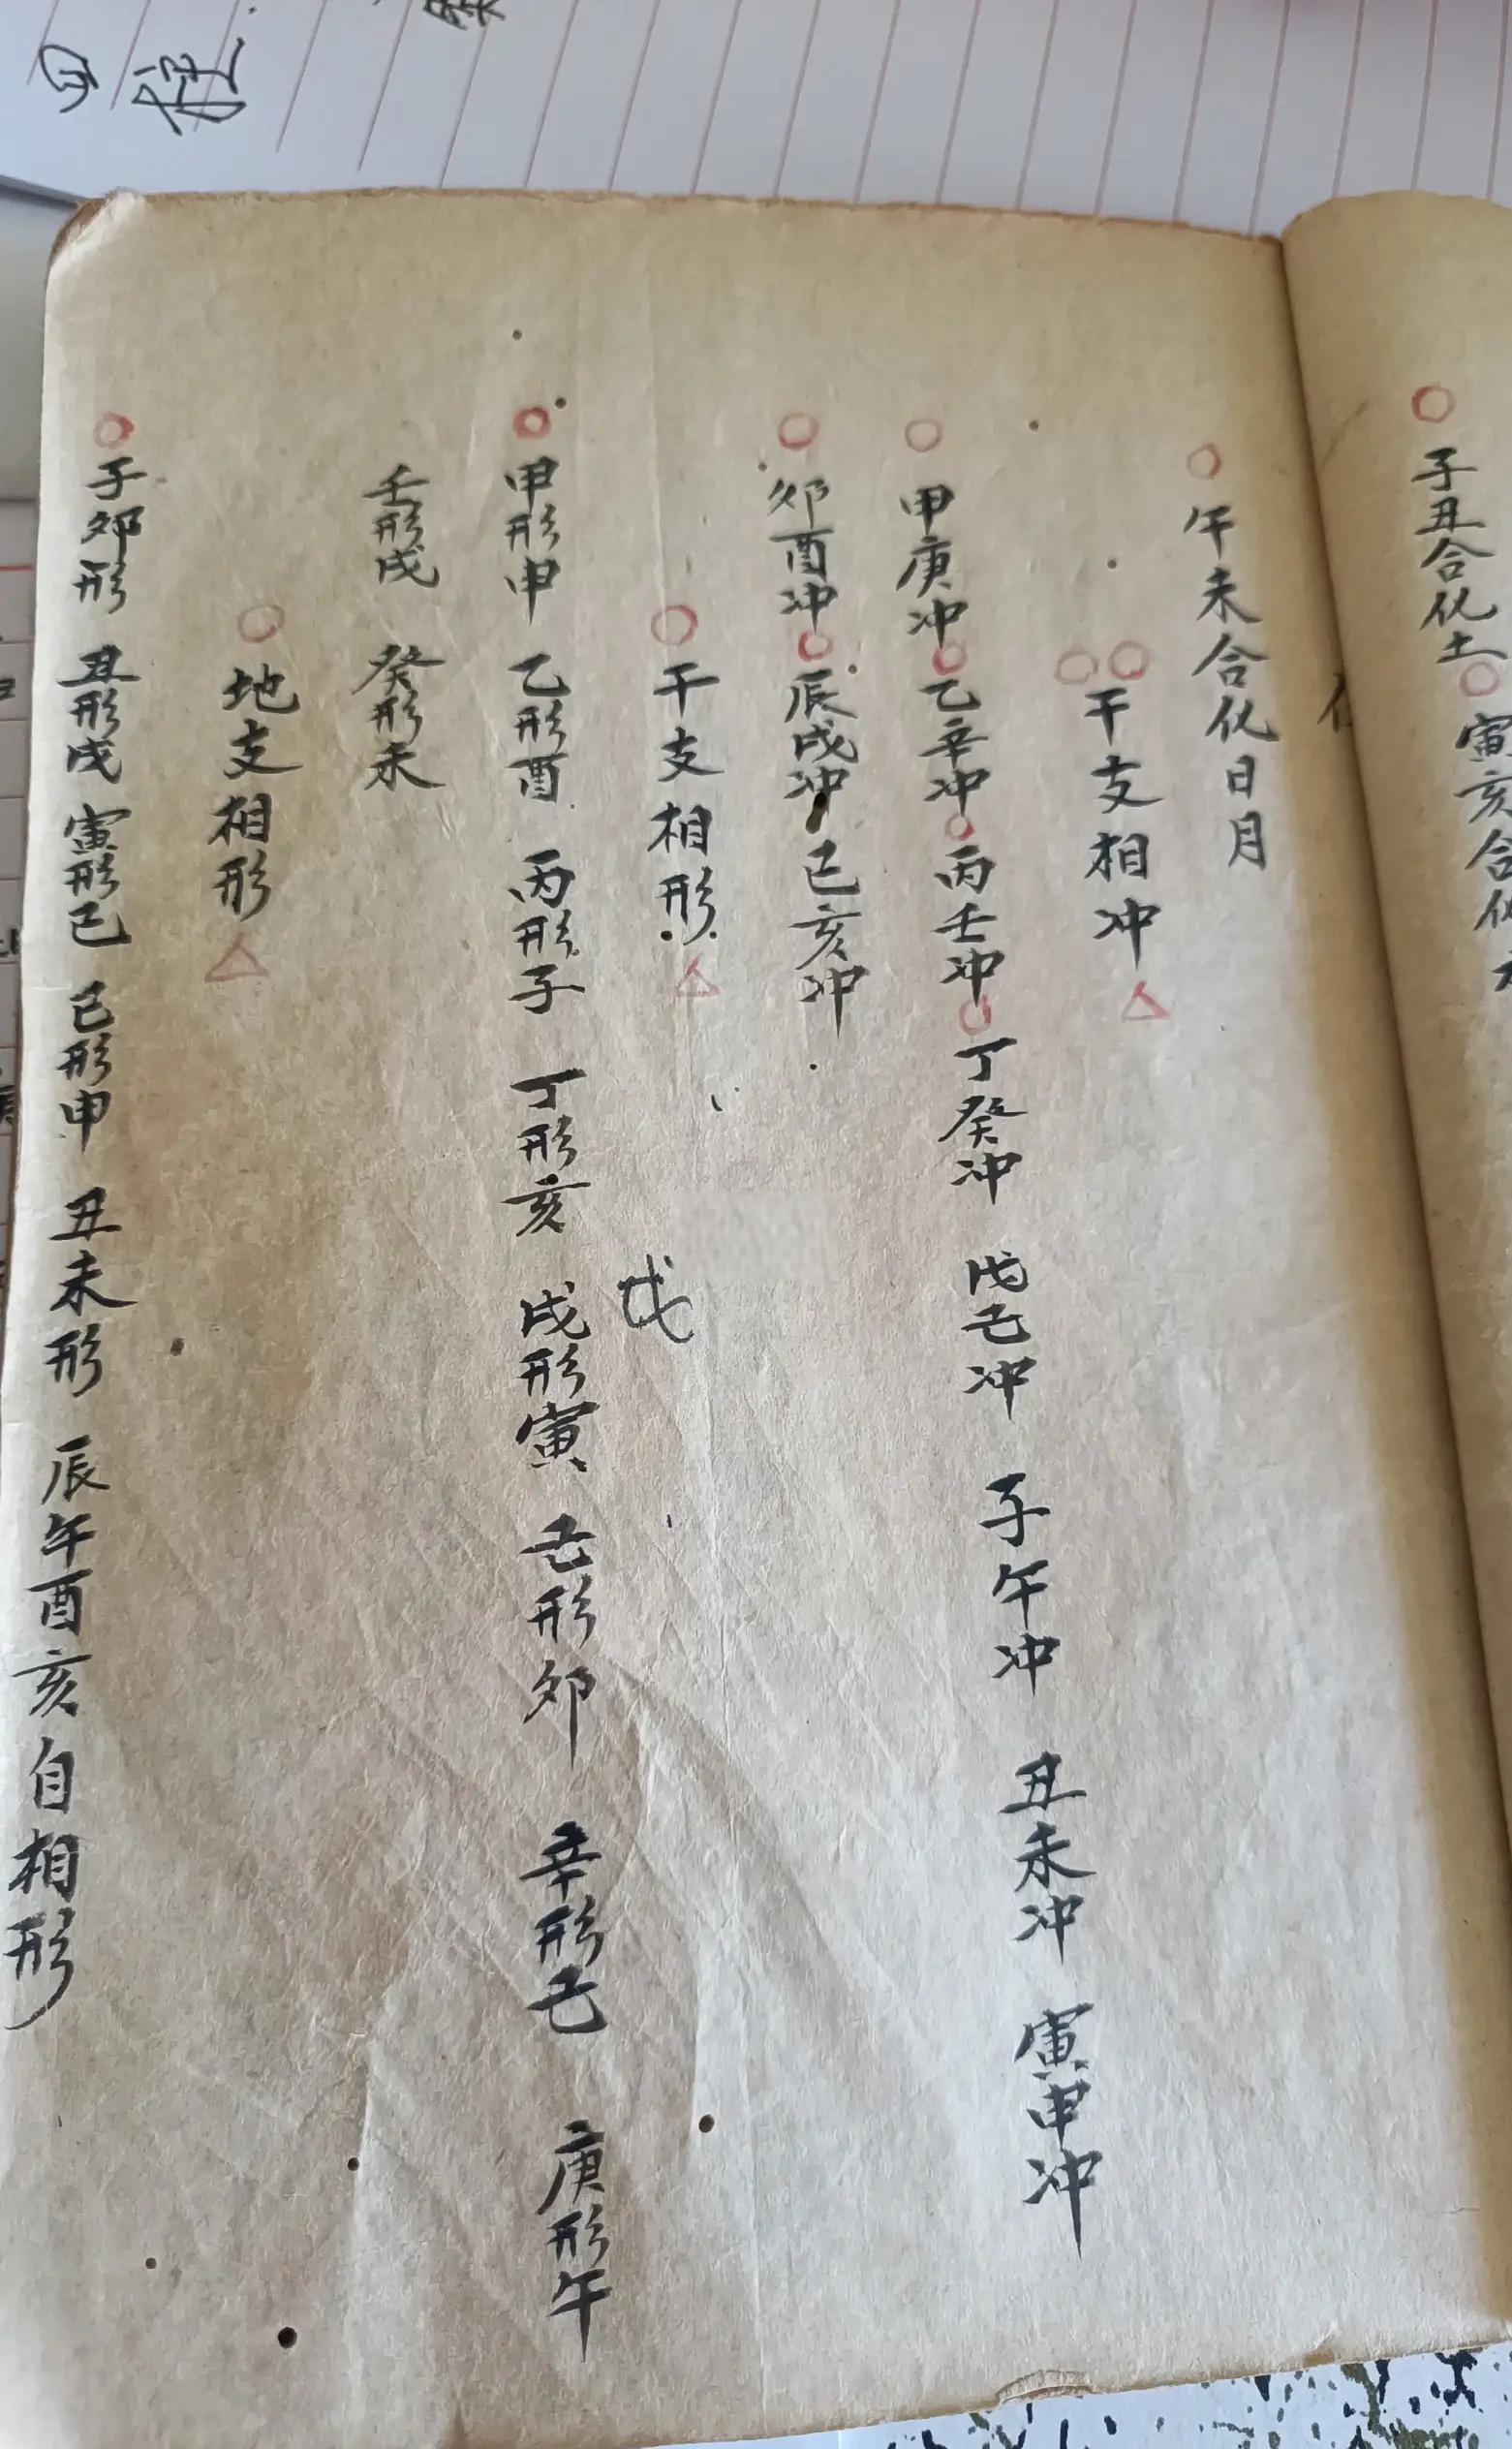 子丑合化土○寅亥合化
午未合化日月
干支相冲
甲庚冲 乙辛冲 丙壬冲 丁癸冲 戊己冲 子午冲 丑未冲 寅申冲
卯酉冲 辰戌冲 巳亥冲
干支相形
戊
甲形申 乙形酉 丙形子 丁形亥 戌形寅 己形卯 辛形己 庚形午
壬形戌 癸形未
地支相形
子卯形 丑形戌 寅形巳 巳形申 丑未形 辰午酉亥自相形